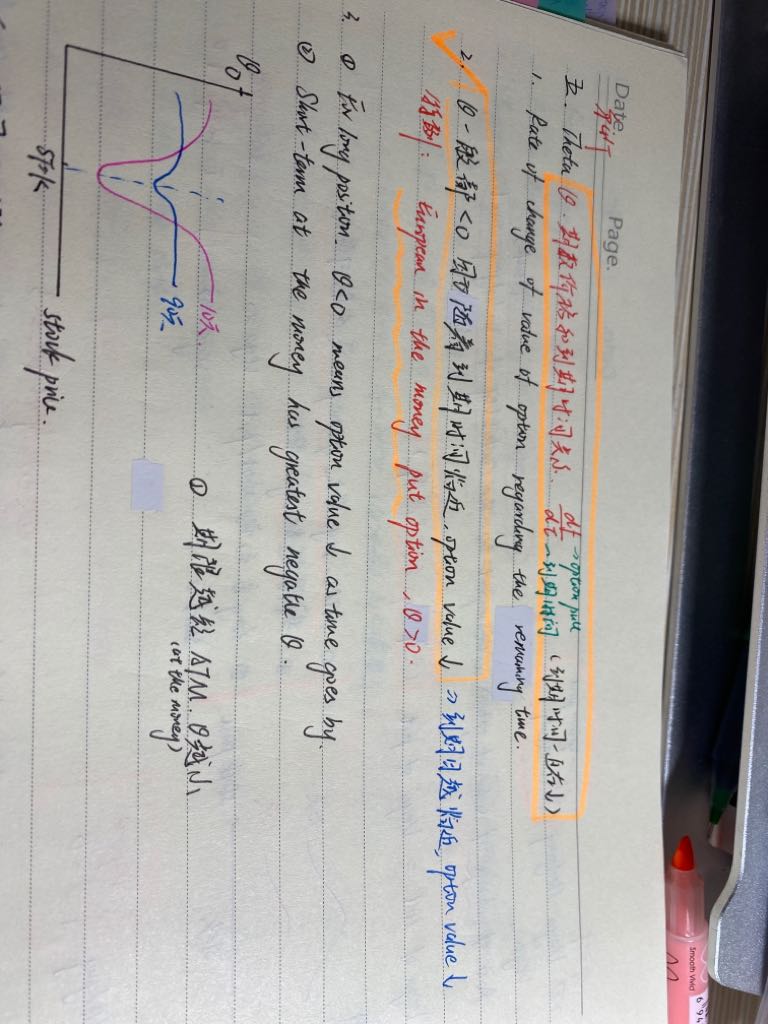 Date.
Page.
五. Theta θ. 期权价格和到期时间关系. df/dt → option price → 到期时间 (到期时间一直在↓)
1. Rate of change of value of option regarding the remaining time.
2. θ一般都<0 因为随着到期时间临近, option value ↓ → 到期日越临近, option value ↓
特例: European in the money put option, θ>0.
3. ① For long position. θ<0 means option value ↓ as time goes by.
② Short-term at the money has greatest negative θ.
θ
0
10天
90天
stock price.
① 期限越短 ATM. θ越小
(at the money)
Smooth Vivid